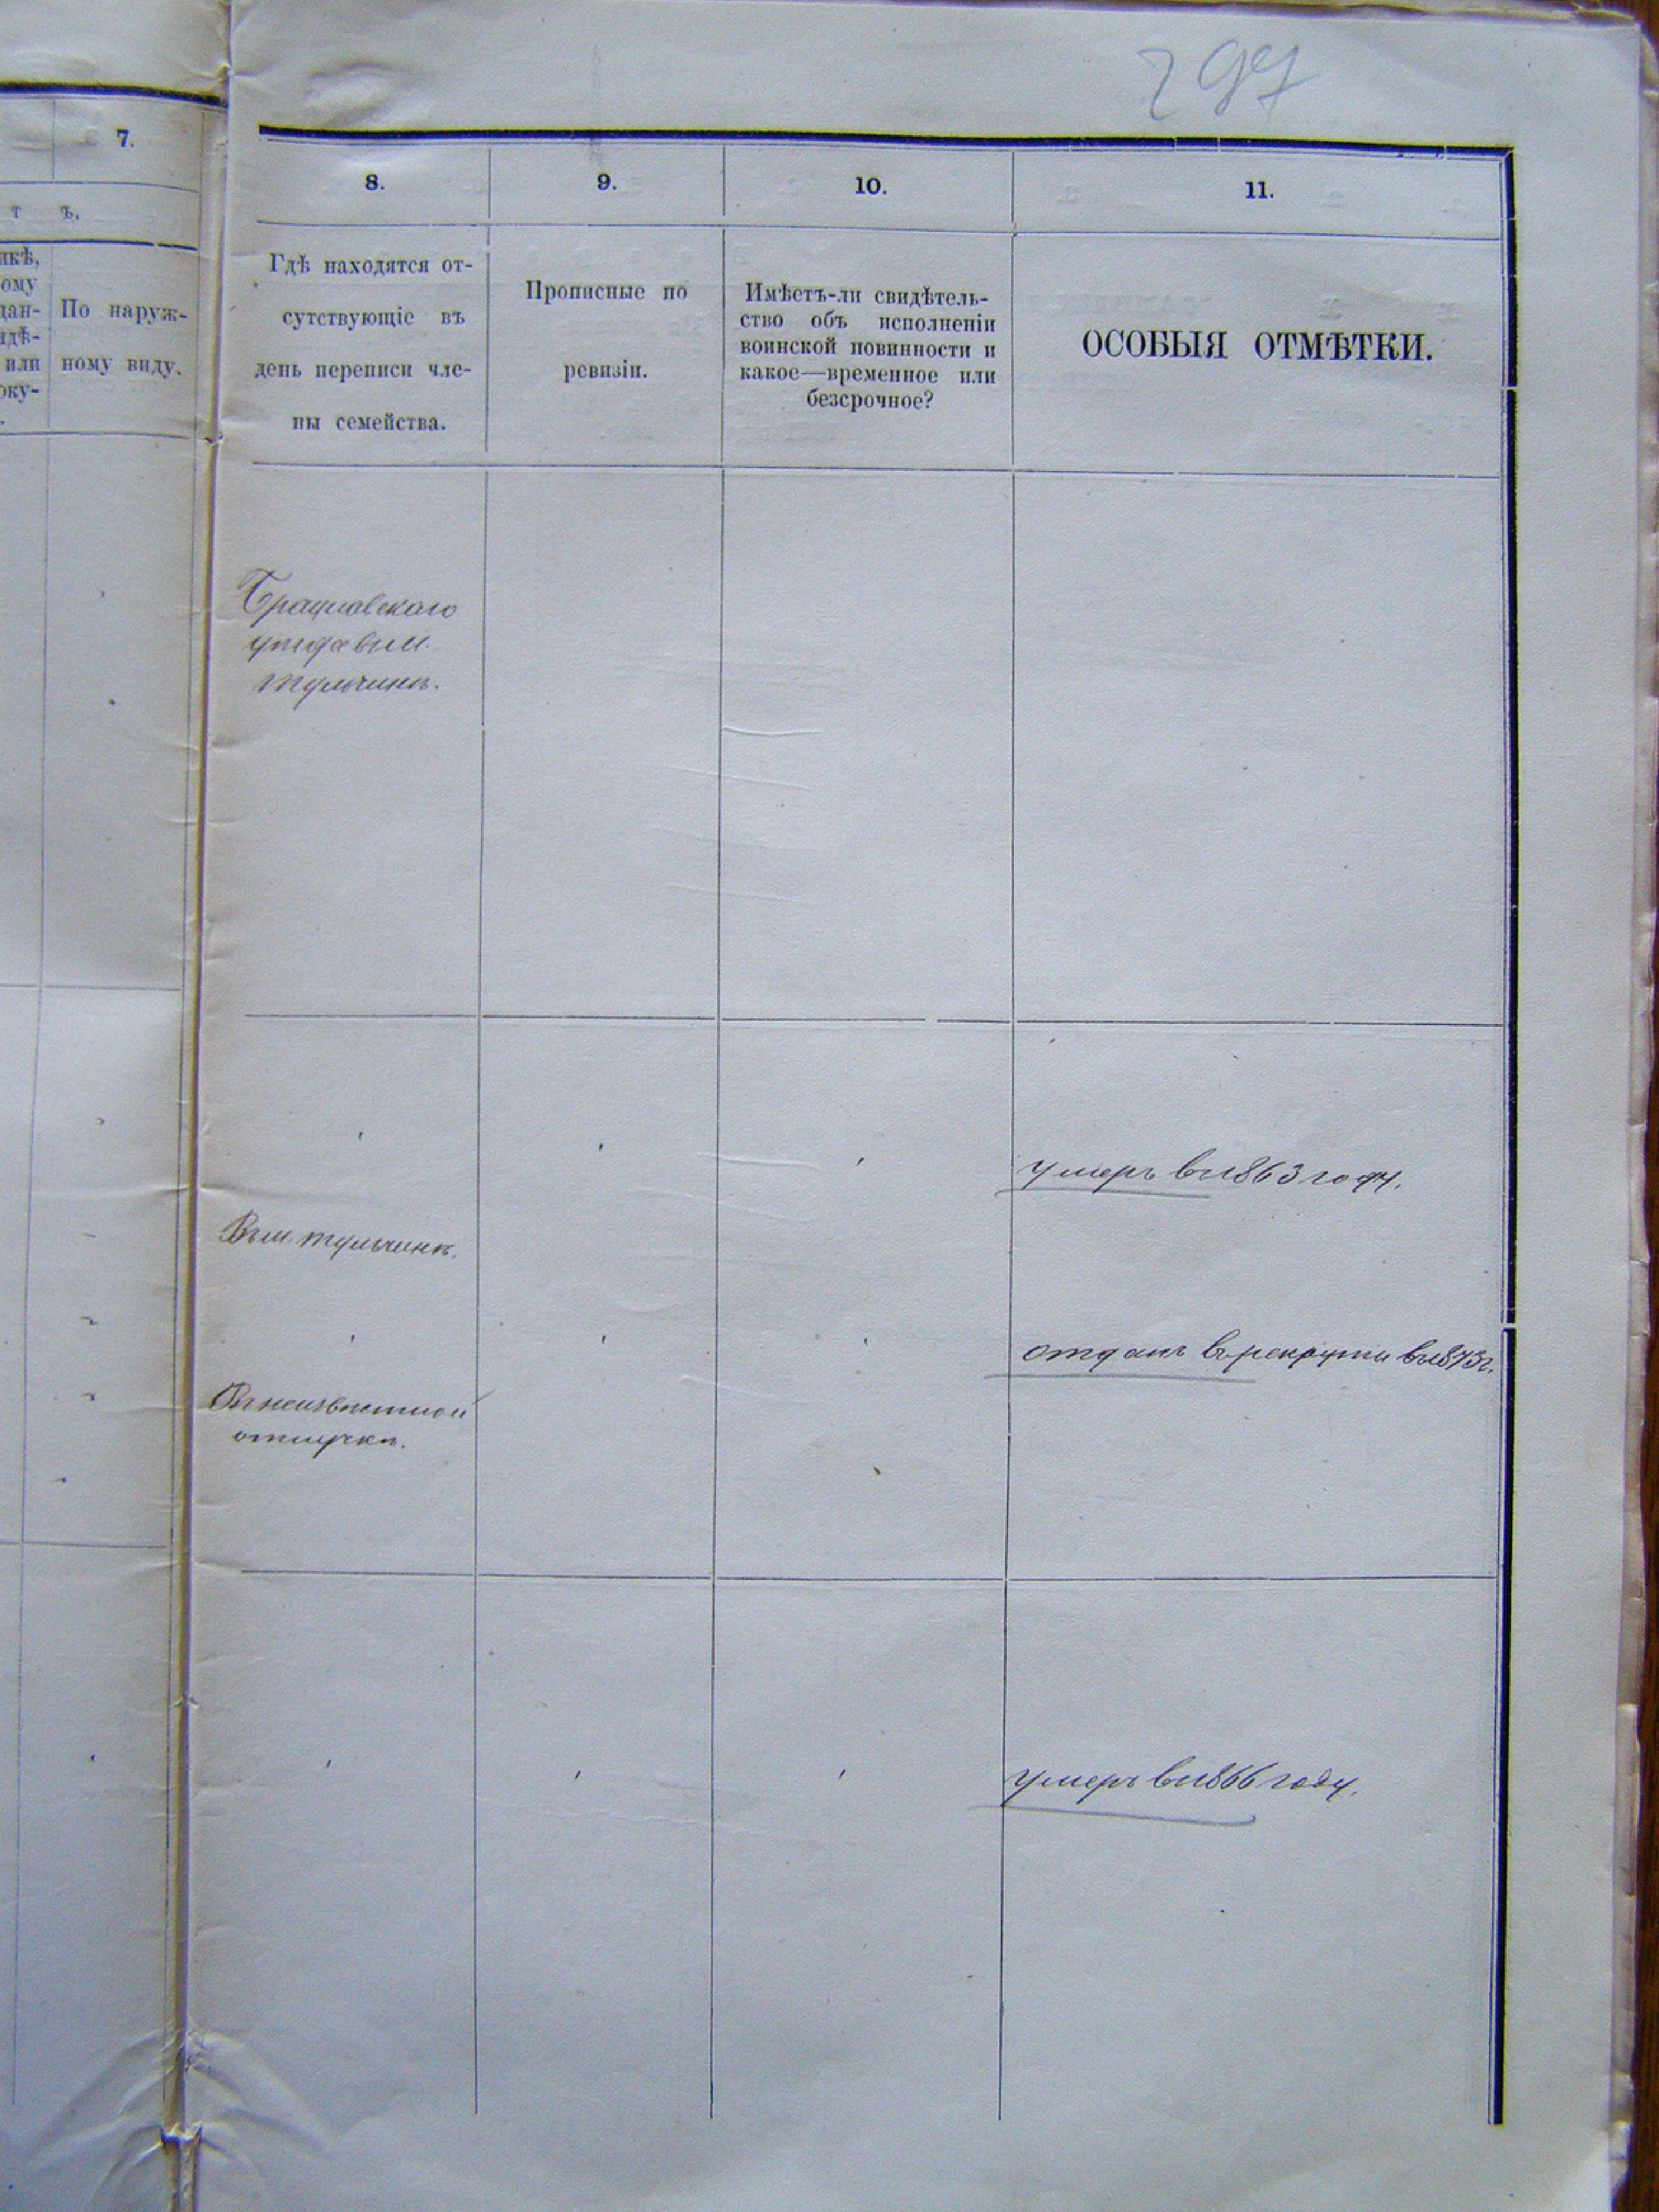 297
7.
т ъ.
икѣ,
ому
дан-
идѣ-
или
оку-
По наруж-
ному виду.
8.
9.
10.
11.
Гдѣ находятся от-
сутствующіе въ
день переписи чле-
ны семейства.
Прописные по
ревизіи.
Имѣетъ-ли свидѣтель-
ство объ исполненіи
воинской повинности и
какое—временное или
безсрочное?
ОСОБЫЯ ОТМѢТКИ.
Брацлавскаго
уѣзда въ м.
Тульчинѣ.
умеръ въ 1863 году.
Въ м. Тульчинѣ.
отданъ въ рекруты въ 1873 г.
Въ неизвѣстной
отлучкѣ.
умеръ въ 1866 году.